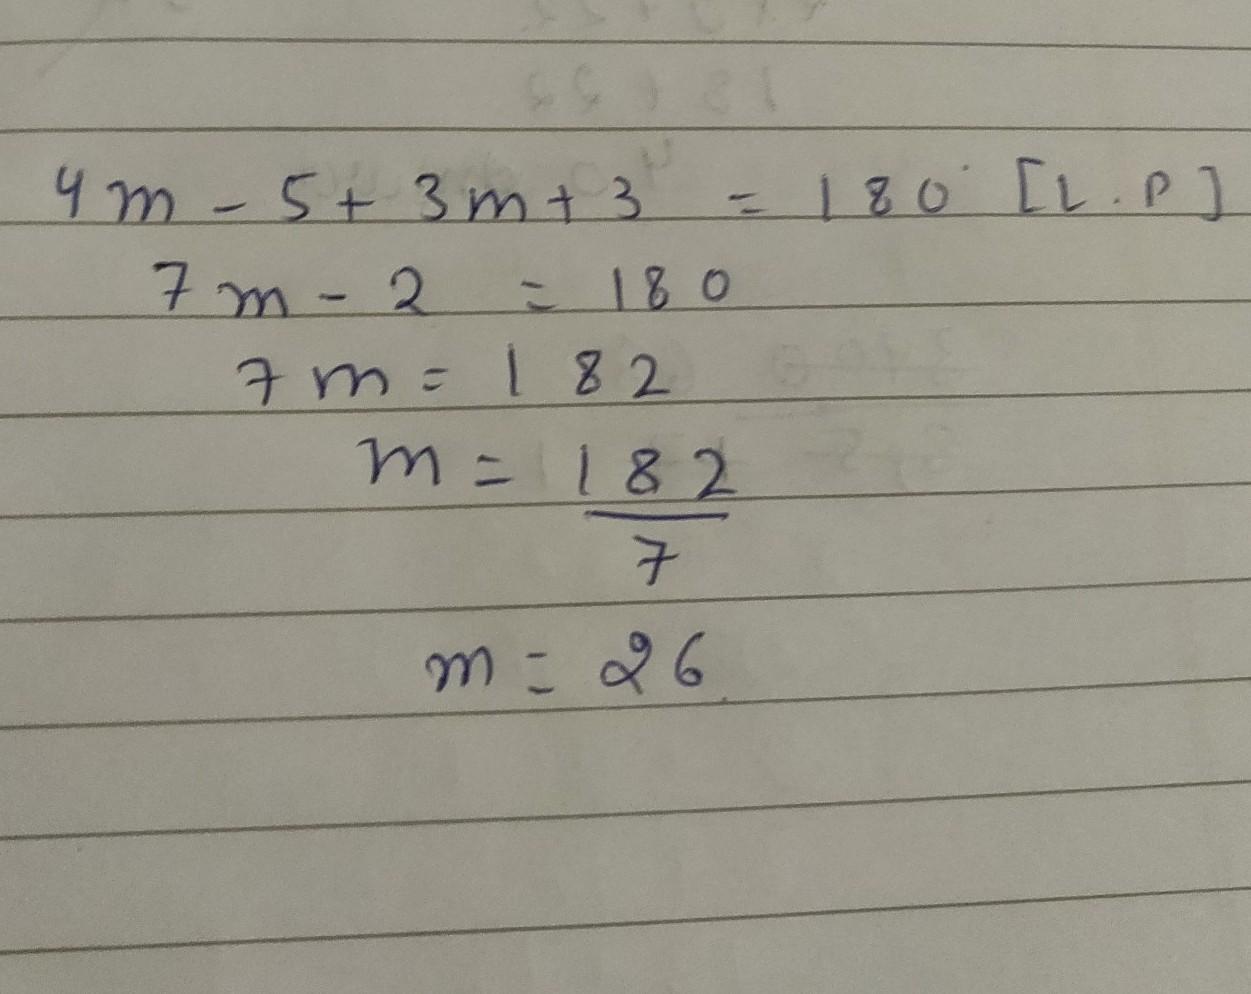 4m - 5 + 3m + 3 = 180° [L.P]
7m - 2 = 180
7m = 182
m = 182
7
m = 26